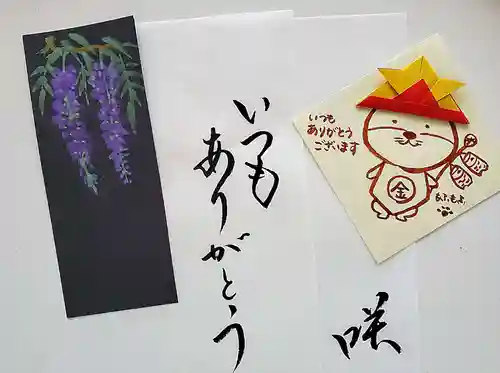 いつも
ありがとう
咲
いつも
ありがとう
ございます
金